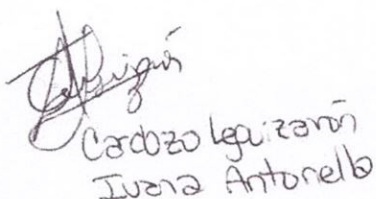 Cardozo Leguizamón
Ivana Antonella